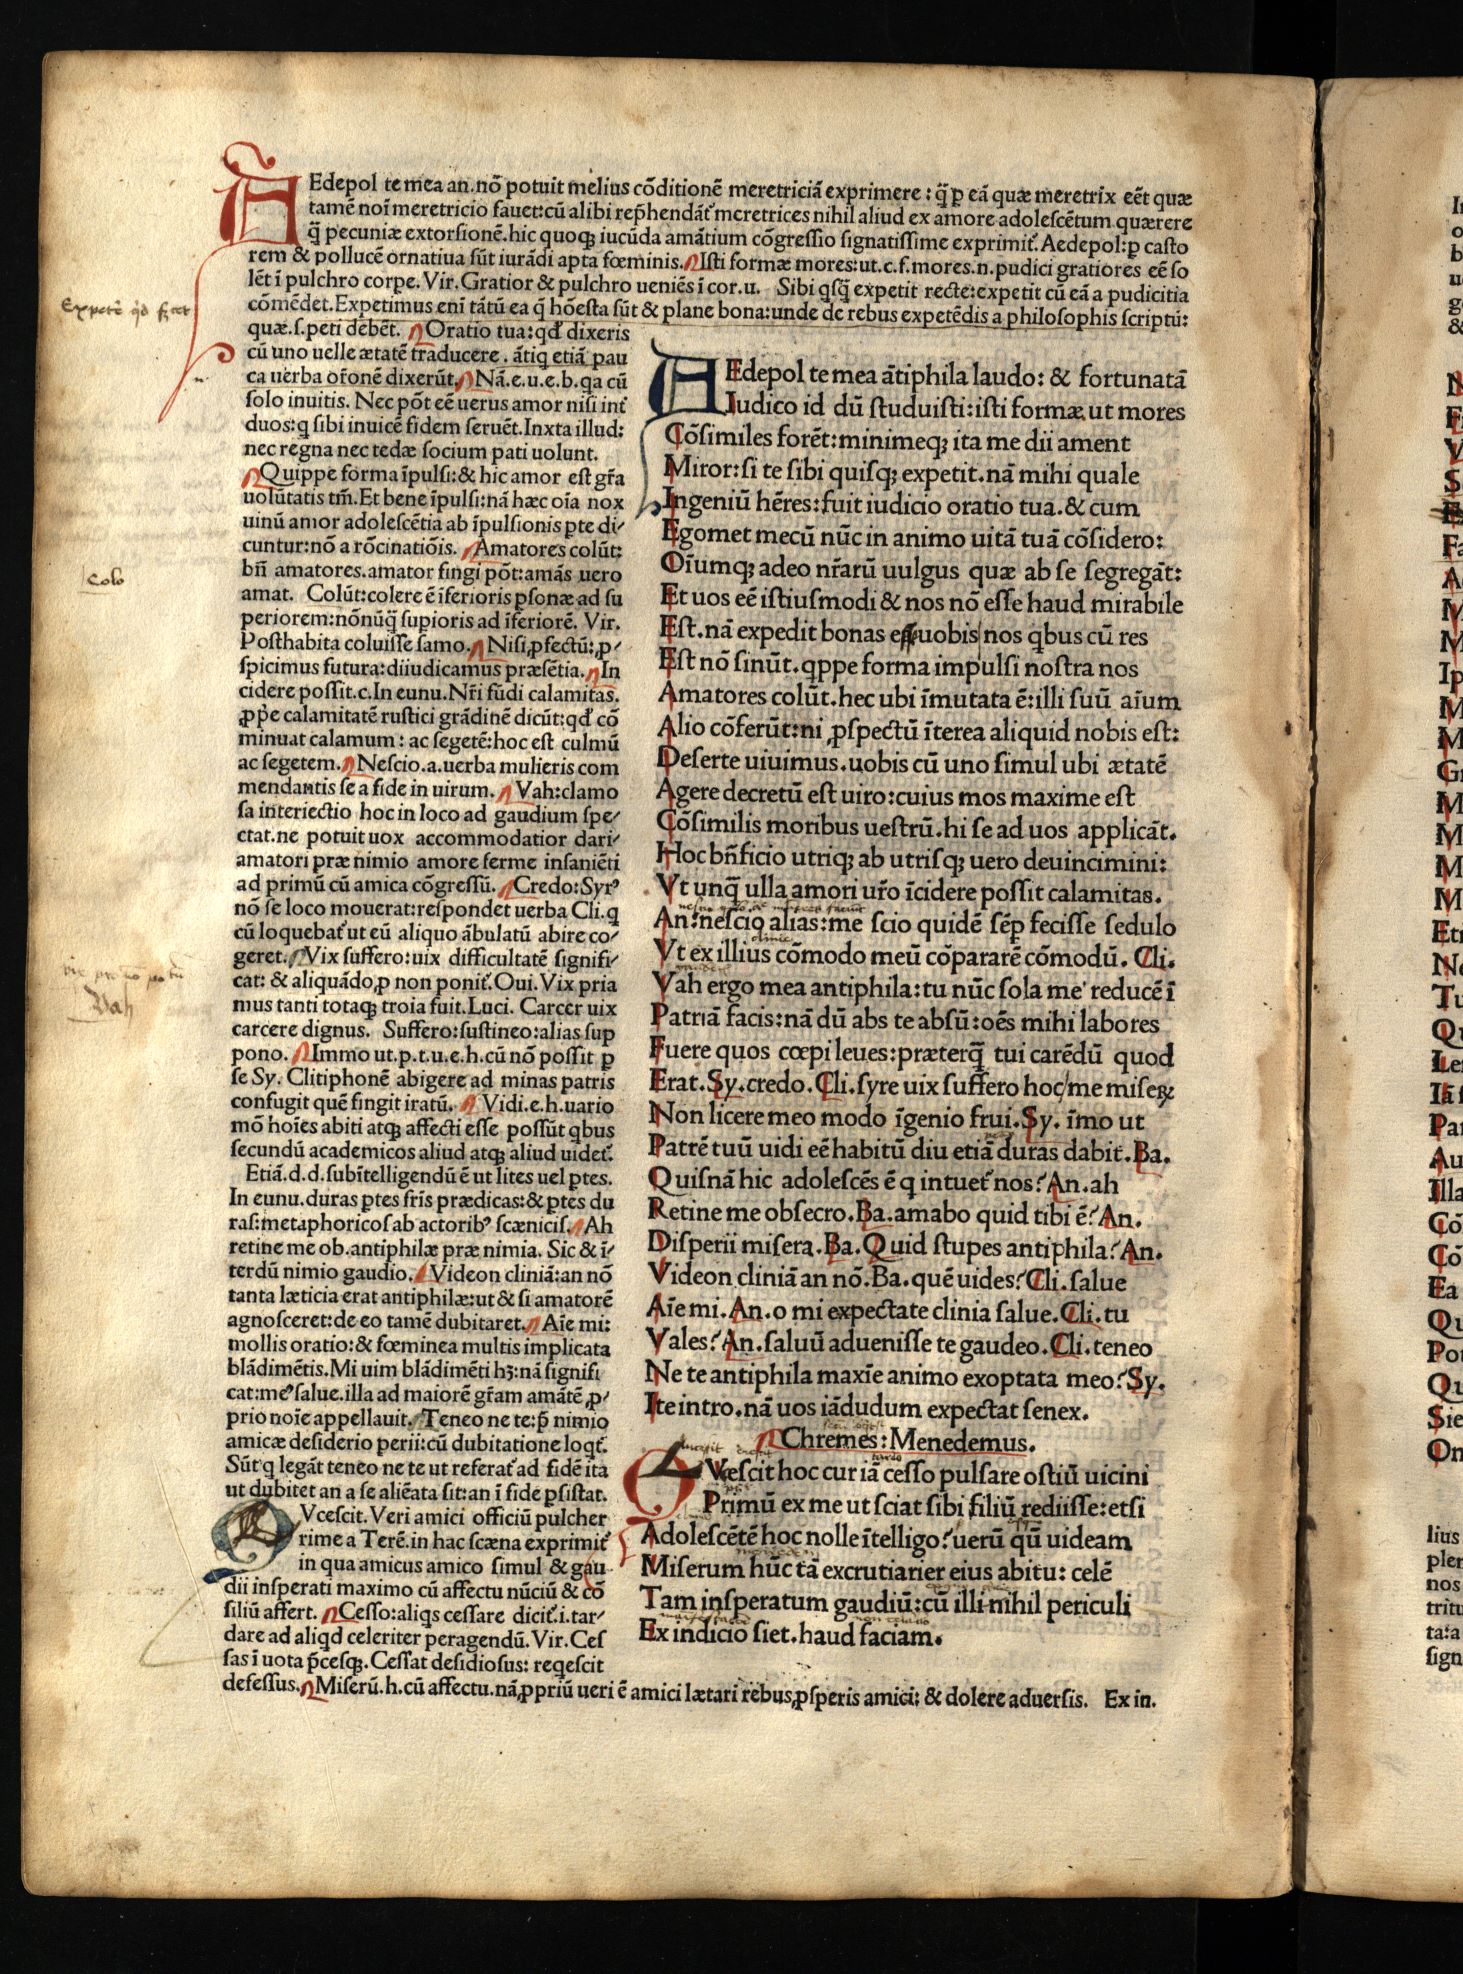 AEdepol te mea an. nõ potuit melius cõditionẽ meretriciã exprimere: q̃ ꝑ eã quæ meretrix eẽt quæ
tamẽ noĩ meretricio fauet: cũ alibi rep̃hendãt̃ meretrices nihil aliud ex amore adolescẽtum quærere
q̃ pecuniæ extorsionẽ. hic quoqꝫ iucũda amãtium cõgressio signatissime exprimit̃. Aedepol: ꝑ casto
rem & pollucẽ ornatiua sũt iurãdi apta fœminis. Isti formæ mores: ut. c. f. mores. n. pudici gratiores eẽ so
lẽt ĩ pulchro corpe. Vir. Gratior & pulchro ueniẽs ĩ cor. u. Sibi qsq̃ expetit recte: expetit cũ eã a pudicitia
cõmẽdet. Expetimus enĩ tãtũ ea q̃ hõesta sũt & plane bona: unde de rebus expetẽdis a philosophis scriptũ:
quæ. s. peti debẽt. Oratio tua: qd̃ dixeris
cũ uno uelle ætatẽ traducere. ãtiq etiã pau
ca uerba or̃onẽ dixerũt. Nã. e. u. e. b. qa cũ
solo inuitis. Nec põt eẽ uerus amor nisi int̃
duos: q sibi inuicẽ fidem seruẽt. Inxta illud:
nec regna nec tedæ socium pati uolunt.
Quippe forma ĩpulsi: & hic amor est gr̃a
uolũtatis tm̃. Et bene ĩpulsi: nã hæc oĩa nox
uinũ amor adolescẽtia ab ĩpulsionis ꝑte di/
cuntur: nõ a rõcinatiõis. Amatores colũt:
bñ amatores. amator fingi põt: amãs uero
amat. Colũt: colere ẽ ĩferioris ꝑsonæ ad su
periorem: nõnũq̃ supioris ad ĩferiorẽ. Vir.
Posthabita coluisse samo. Nisi ꝓfectũ: ꝓ/
spicimus futura: diiudicamus præsẽtia. In
cidere possit. c. In eunu. Nr̃i fũdi calamitas.
ꝓp̃e calamitatẽ rustici grãdinẽ dicũt: qd̃ cõ
minuat calamum: ac segetẽ: hoc est culmũ
ac segetem. Nescio. a. uerba mulieris com
mendantis se a fide in uirum. Vah: clamo
sa interiectio hoc in loco ad gaudium spe/
ctat. ne potuit uox accommodatior dari/
amatori præ nimio amore ferme insaniẽti
ad primũ cũ amica cõgressũ. Credo: Syr⁹
nõ se loco mouerat: respondet uerba Cli. q
cũ loquebat̃ ut eũ aliquo ãbulatũ abire co/
geret. Vix suffero: uix difficultatẽ signifi/
cat: & aliquãdo, ꝓ non ponit̃. Oui. Vix pria
mus tanti totaqꝫ troia fuit. Luci. Carcer uix
carcere dignus. Suffero: sustineo: alias sup
pono. Immo ut. p. t. u. e. h. cũ nõ possit ꝑ
se Sy. Clitiphonẽ abigere ad minas patris
confugit quẽ fingit iratũ. Vidi. e. h. uario
mõ hoĩes abiti atqꝫ affecti esse possũt qbus
secundũ academicos aliud atqꝫ aliud uidet̃.
Etiã. d. d. subĩtelligendũ ẽ ut lites uel ꝑtes.
In eunu. duras ꝑtes fr̃is prædicas: & ꝑtes du
ras: metaphoricos ab actorib⁹ scænicis. Ah
retine me ob. antiphilæ præ nimia. Sic & ĩ/
terdũ nimio gaudio. Videon cliniã: an nõ
tanta læticia erat antiphilæ: ut & si amatorẽ
agnosceret: de eo tamẽ dubitaret. Aĩe mi:
mollis oratio: & fœminea multis implicata
blãdimẽtis. Mi uim blãdimẽti hꝫ: nã signifi
cat: me⁹ salue. illa ad maiorẽ gr̃am amãtẽ ꝓ/
prio noĩe appellauit. Teneo ne te: p̃ nimio
amicæ desiderio perii: cũ dubitatione loqt̃.
Sũt q legãt teneo ne te ut referat̃ ad fidẽ ita
ut dubitet an a se aliẽata sit: an ĩ fide ꝑsistat.
Vcescit. Veri amici officiũ pulcher
rime a Terẽ. in hac scæna exprimit̃
in qua amicus amico simul & gau
dii insperati maximo cũ affectu nũciũ & cõ
siliũ affert. Cesso: aliqs cessare dicit̃. i. tar/
dare ad aliqd celeriter peragendũ. Vir. Ces
sas ĩ uota p̃cesqꝫ. Cessat desidiosus: reqescit
defessus. Miserũ. h. cũ affectu. nã ꝓpriũ ueri ẽ amici lætari rebus ꝓsperis amici: & dolere aduersis. Ex in.
AEdepol te mea ãtiphila laudo: & fortunatã
Iudico id dũ studuisti: isti formæ ut mores
Cõsimiles forẽt: minimeqꝫ ita me dii ament
Miror: si te sibi quisqꝫ expetit. nã mihi quale
Ingeniũ hẽres: fuit iudicio oratio tua. & cum
Egomet mecũ nũc in animo uitã tuã cõsidero:
Oĩumqꝫ adeo nr̃arũ uulgus quæ ab se segregãt:
Et uos eẽ istiusmodi & nos nõ esse haud mirabile
Est. nã expedit bonas esse uobis nos qbus cũ res
Est nõ sinũt. qppe forma impulsi nostra nos
Amatores colũt. hec ubi ĩmutata ẽ: illi suũ aĩum
Alio cõferũt: ni ꝓspectũ ĩterea aliquid nobis est:
Deserte uiuimus. uobis cũ uno simul ubi ætatẽ
Agere decretũ est uiro: cuius mos maxime est
Cõsimilis moribus uestrũ. hi se ad uos applicãt.
Hoc bñficio utriqꝫ ab utrisqꝫ uero deuincimini:
Vt unq̃ ulla amori ur̃o ĩcidere possit calamitas.
An. nescio alias: me scio quidẽ sẽp fecisse sedulo
Vt ex illius cõmodo meũ cõpararẽ cõmodũ. Cli.
Vah ergo mea antiphila: tu nũc sola me reducẽ ĩ
Patriã facis: nã dũ abs te absũ: oẽs mihi labores
Fuere quos cœpi leues: præterq̃ tui carẽdũ quod
Erat. Sy. credo. Cli. syre uix suffero hoc/ me miseꝝ
Non licere meo modo ĩgenio frui. Sy. ĩmo ut
Patrẽ tuũ uidi eẽ habitũ diu etiã duras dabit. Ba.
Quisnã hic adolescẽs ẽ q intuet̃ nos? An. ah
Retine me obsecro. Ba. amabo quid tibi ẽ? An.
Disperii misera. Ba. Quid stupes antiphila? An.
Videon cliniã an nõ. Ba. quẽ uides? Cli. salue
Aĩe mi. An. o mi expectate clinia salue. Cli. tu
Vales? An. saluũ aduenisse te gaudeo. Cli. teneo
Ne te antiphila maxĩe animo exoptata meo? Sy.
Ite intro. nã uos iãdudum expectat senex.
Chremes: Menedemus.
Vcescit hoc cur iã cesso pulsare ostiũ uicini
Primũ ex me ut sciat sibi filiũ rediisse: etsi
Adolescẽtẽ hoc nolle ĩtelligo? uerũ qũ uideam
Miserum hũc tã excrutiarier eius abitu: celẽ
Tam insperatum gaudiũ: cũ illi nihil periculi
Ex indicio siet. haud faciam.
Colo
Vah